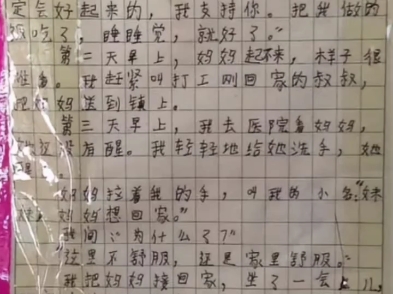 定会好起来的，我支持你。把我做的
饭吃了，睡睡觉，就好了。”
第二天早上，妈妈起不来，样子很
难看。我赶紧叫打工刚回家的叔叔，
把妈妈送到镇上。
第三天早上，我去医院看妈妈，
她还没有醒。我轻轻地给她洗手，她
醒
妈妈拉着我的手，叫我的小名“妹
妹，妈妈想回家。”
我问：“为什么了？”
“这里不舒服，还是家里舒服。”
我把妈妈接回家，坐了一会儿，